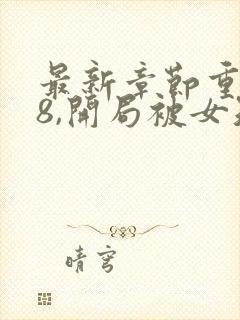 最新章节重
8,開局被女
晴穹